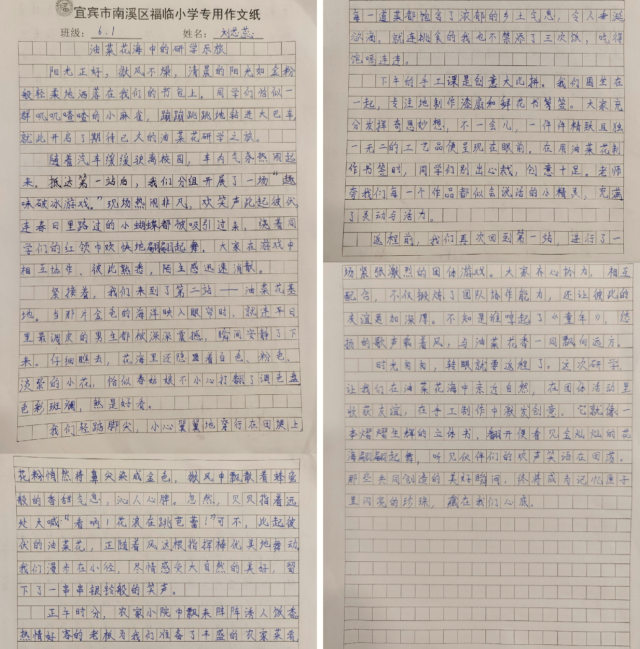 宜宾市南溪区福临小学专用作文纸
班级：6.1 姓名：
油菜花海中的研学乐旅
阳光正好，微风不燥，清晨的阳光如金粉
般轻柔地洒落在我们的书包上。同学们恰似一
群叽叽喳喳的小麻雀，蹦蹦跳跳地钻进大巴车，
就此开启了期待已久的油菜花研学之旅。
随着汽车缓缓驶离校园，车内气氛热闹起
来。抵达第一站后，我们分组开展了一场“趣
味破冰游戏。”现场热闹非凡，欢笑声此起彼伏，
连春日里路过的小蝴蝶都被吸引过来，绕着同
学们的红领巾欢快地翩翩起舞。大家在游戏中
相互协作，彼此熟悉，陌生感迅速消散。
紧接着，我们来到了第二站——油菜花基
地。当那片金色的海洋映入眼帘时，就连平日
里最调皮的男生都被深深震撼，瞬间安静了下
来。仔细瞧去，花海里还隐匿着白色、粉色、
淡紫的小花，恰似春姑娘不小心打翻了调色盘，
色彩斑斓，煞是好看。
我们轻踮脚尖，小心翼翼地穿行在田埂上
花粉悄然将鼻尖染成金色，微风中飘散着蜂蜜
般的香甜气息，沁人心脾。忽然，贝贝指着远
处大喊“看呐！花浪在跳芭蕾！”可不，此起彼
伏的油菜花，正随着风这根指挥棒优美地舞动，
我们漫步在小径，尽情感受大自然的美好，留
下了一串串银铃般的笑声。
正午时分，农家小院中飘来阵阵诱人饭香，
热情好客的老板为我们准备了丰盛的农家菜肴，
每一道菜都饱含了浓郁的乡土气息，令人垂涎
欲滴，就连挑食的我也不禁添了三次饭，吃得
饱嗝连连。
下午的手工课是创意大比拼。我们围坐在
一起，专注地制作漆扇和鲜花书签。大家充
分发挥奇思妙想，不一会儿，一件件精致且独
一无二的工艺品便呈现在眼前，在用油菜花制
作书签时，同学们别出心裁，创意十足。老师
夸我们每一个作品都似会说话的小精灵，充满
了灵动与活力。
返程前，我们再次回到第一站，进行了一
场紧张激烈的团体游戏。大家齐心协力，相互
配合，不仅锻炼了团队协作能力，还让彼此的
友谊更加深厚。不知是谁哼起了《童年》，悠
扬的歌声乘着风，与油菜花香一同飘向远方。
时光匆匆，转眼就要返程了。这次研学，
让我们在油菜花海中亲近自然，在团体活动里
收获友谊，在手工制作中激发创意。它就像一
本熠熠生辉的立体书，翻开便看见金灿灿的花
海翩翩起舞，听见伙伴们的欢声笑语在回荡。
那些共同创造的美好瞬间，终将成为记忆匣子
里闪亮的珍珠，藏在我们心底。